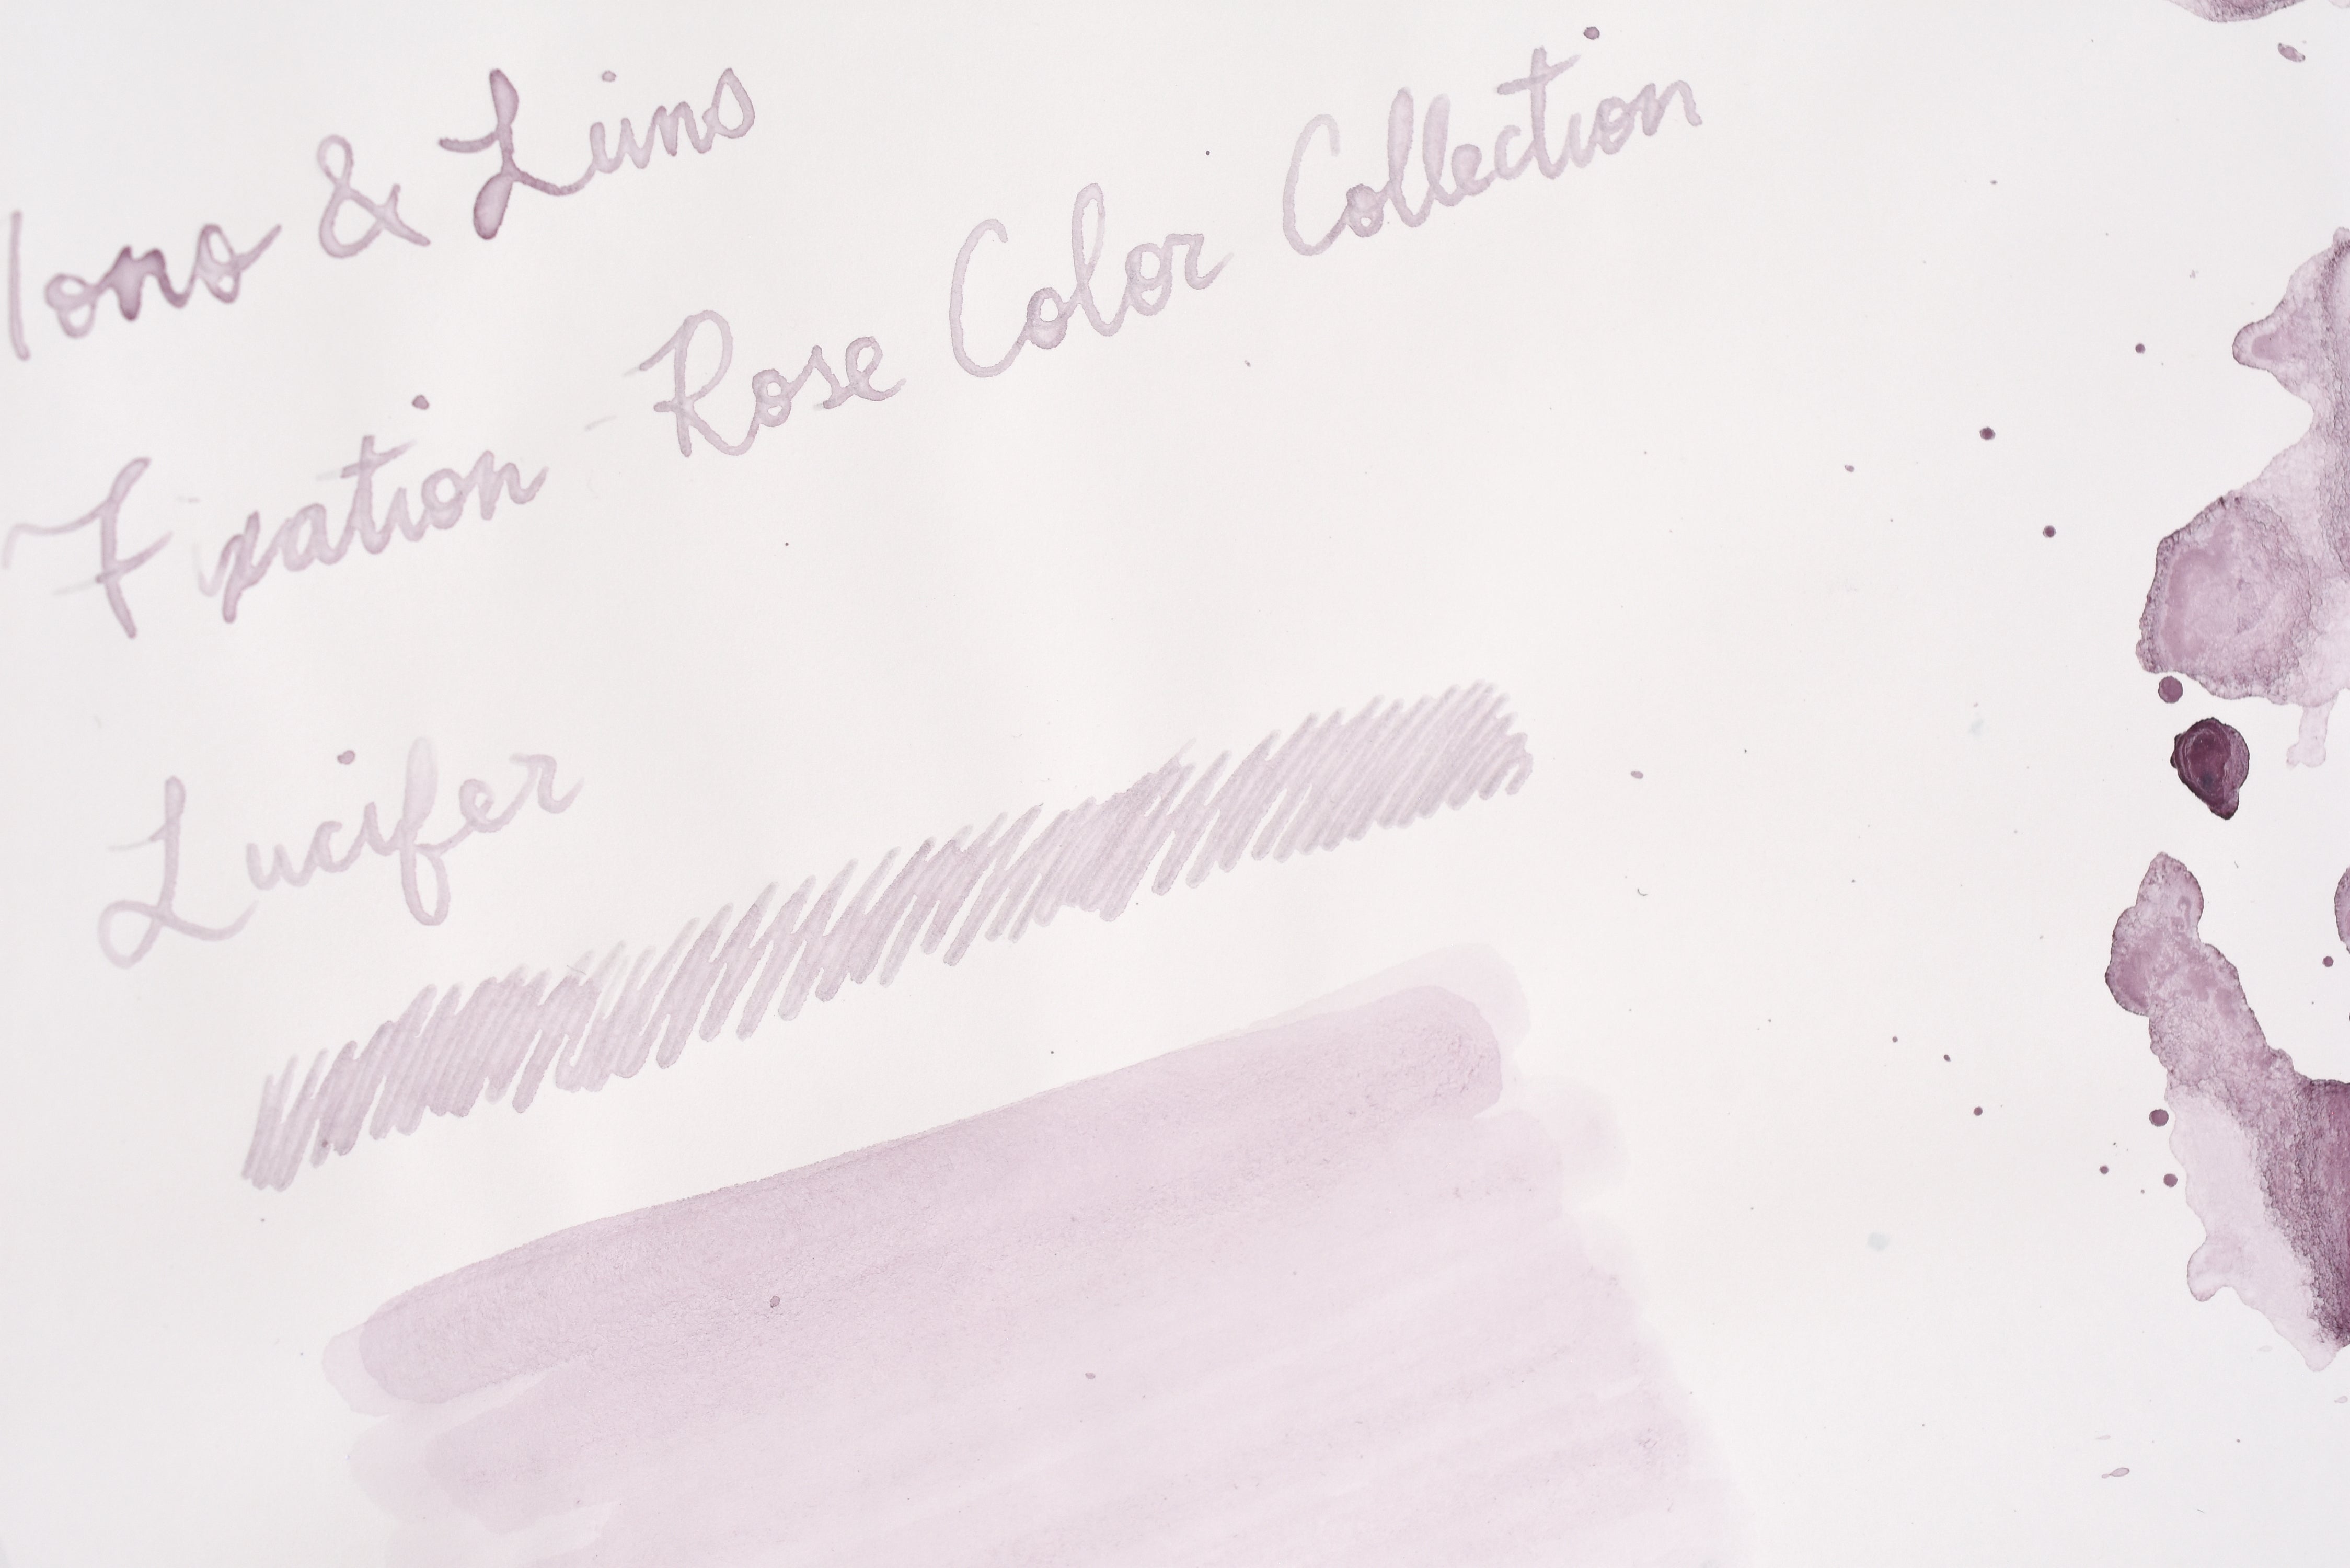 Ions & Luns
Fixation Rose Color Collection
Lucifer